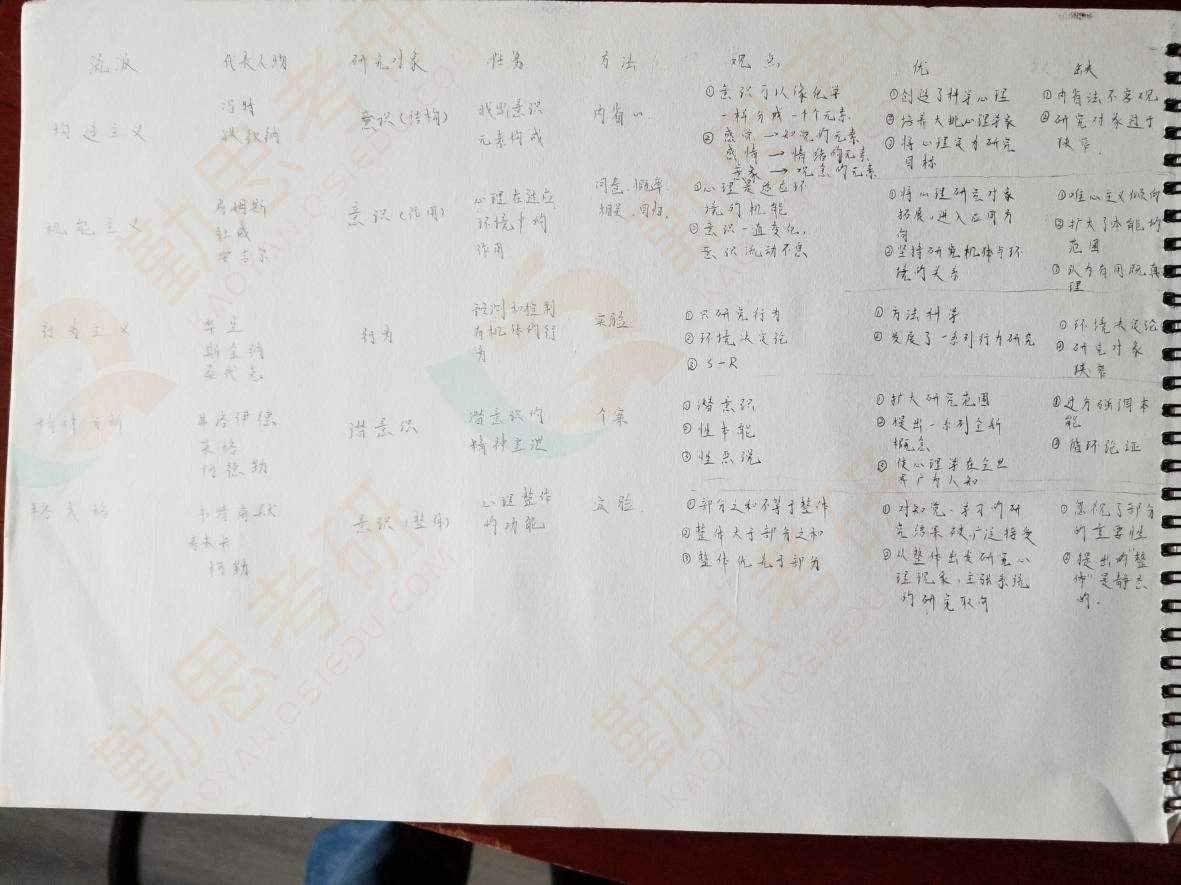 流派 代表人物 研究对象 任务 方法 观点 优 缺
构造主义 冯特 铁钦纳 意识(结构) 找出意识
元素构成
内省
①意识可以像化学
一样分成一个个元素
②感觉→知觉的元素
感情→情绪的元素
意象→观念的元素
①创造了科学心理
②培养大批心理学家
③将心理定为研究
目标
①内省法不客观
②研究对象过于
狭窄.
机能主义 詹姆斯
杜威
安吉尔
意识(作用)
心理在适应
环境中的
作用
问卷.概率.
相关.回归.
①心理是适应环
境的机能
②意识一直变化,
意识流动不息
①将心理研究对象
拓展,进入应用方
向
②坚持研究机体与环
境的关系
①唯心主义倾向
②扩大了本能的
范围
③认为有用既真
理
行为主义 华生
斯金纳
行为
预测和控制
有机体的行
为
实验
①只研究行为
②环境决定论
③S-R
①方法科学
②发展了一系列行为研究
①环境决定论
②研究对象
狭窄
精神分析 弗洛伊德
荣格
阿德勒
潜意识
潜意识的
精神生活
个案
①潜意识
②性本能
③性系统
①扩大研究范围
②提出一系列全新
概念
③使心理学在全世
界广为人知
①过分强调本
能
②循环论证
格式塔 韦特海默
考夫卡
苛勒
意识(整体)
心理整体
的功能
实验.
①部分之和不等于整体
②整体大于部分之和
③整体优先于部分
①对知觉、学习的研
究结果被广泛接受
②从整体出发研究心
理现象,主张系统
的研究取向
①忽视了部分
的重要性
②提出的"整
体"是静态
的.
勤思考研
KAOYAN.QSIEDU.COM
勤思考研
KAOYAN.QSIEDU.COM
勤思考研
KAOYAN.QSIEDU.COM
勤思考研
KAOYAN.QSIEDU.COM